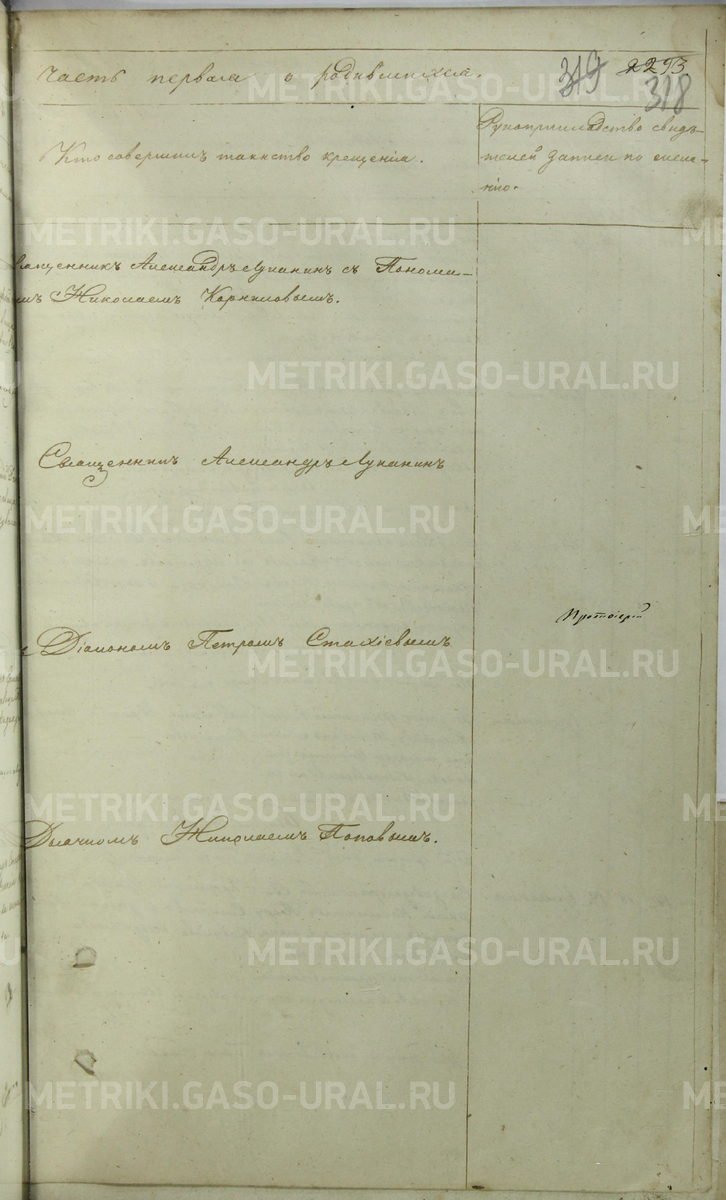 Часть первая о родившихся.
319 2293
318
Кто совершилъ таинство крещенія.
Рукоприкладство свидѣ-
телей записи по жела-
нію.
Священникъ Александръ Лукнинъ съ Понома-
мъ Николаемъ Корниловымъ.
METRIKI.GASO-URAL.RU
Священникъ Александръ Луканинъ
METRIKI.GASO-URAL.RU
Протоіерей
Діакономъ Петромъ Стахіевымъ
METRIKI.GASO-URAL.RU
METRIKI.GASO-URAL.RU
Дьячкомъ Николаемъ Поповымъ.
METRIKI.GASO-URAL.RU
METRIKI.GASO-URAL.RU